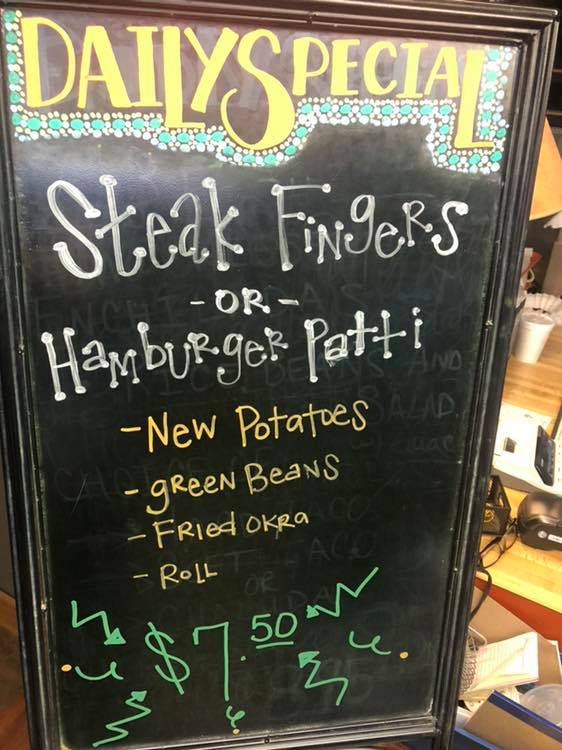 DAILY SPECIAL
Steak Fingers
- OR -
Hamburger Patti
- New Potatoes
- green Beans
- Fried okra
- Roll
$7.50